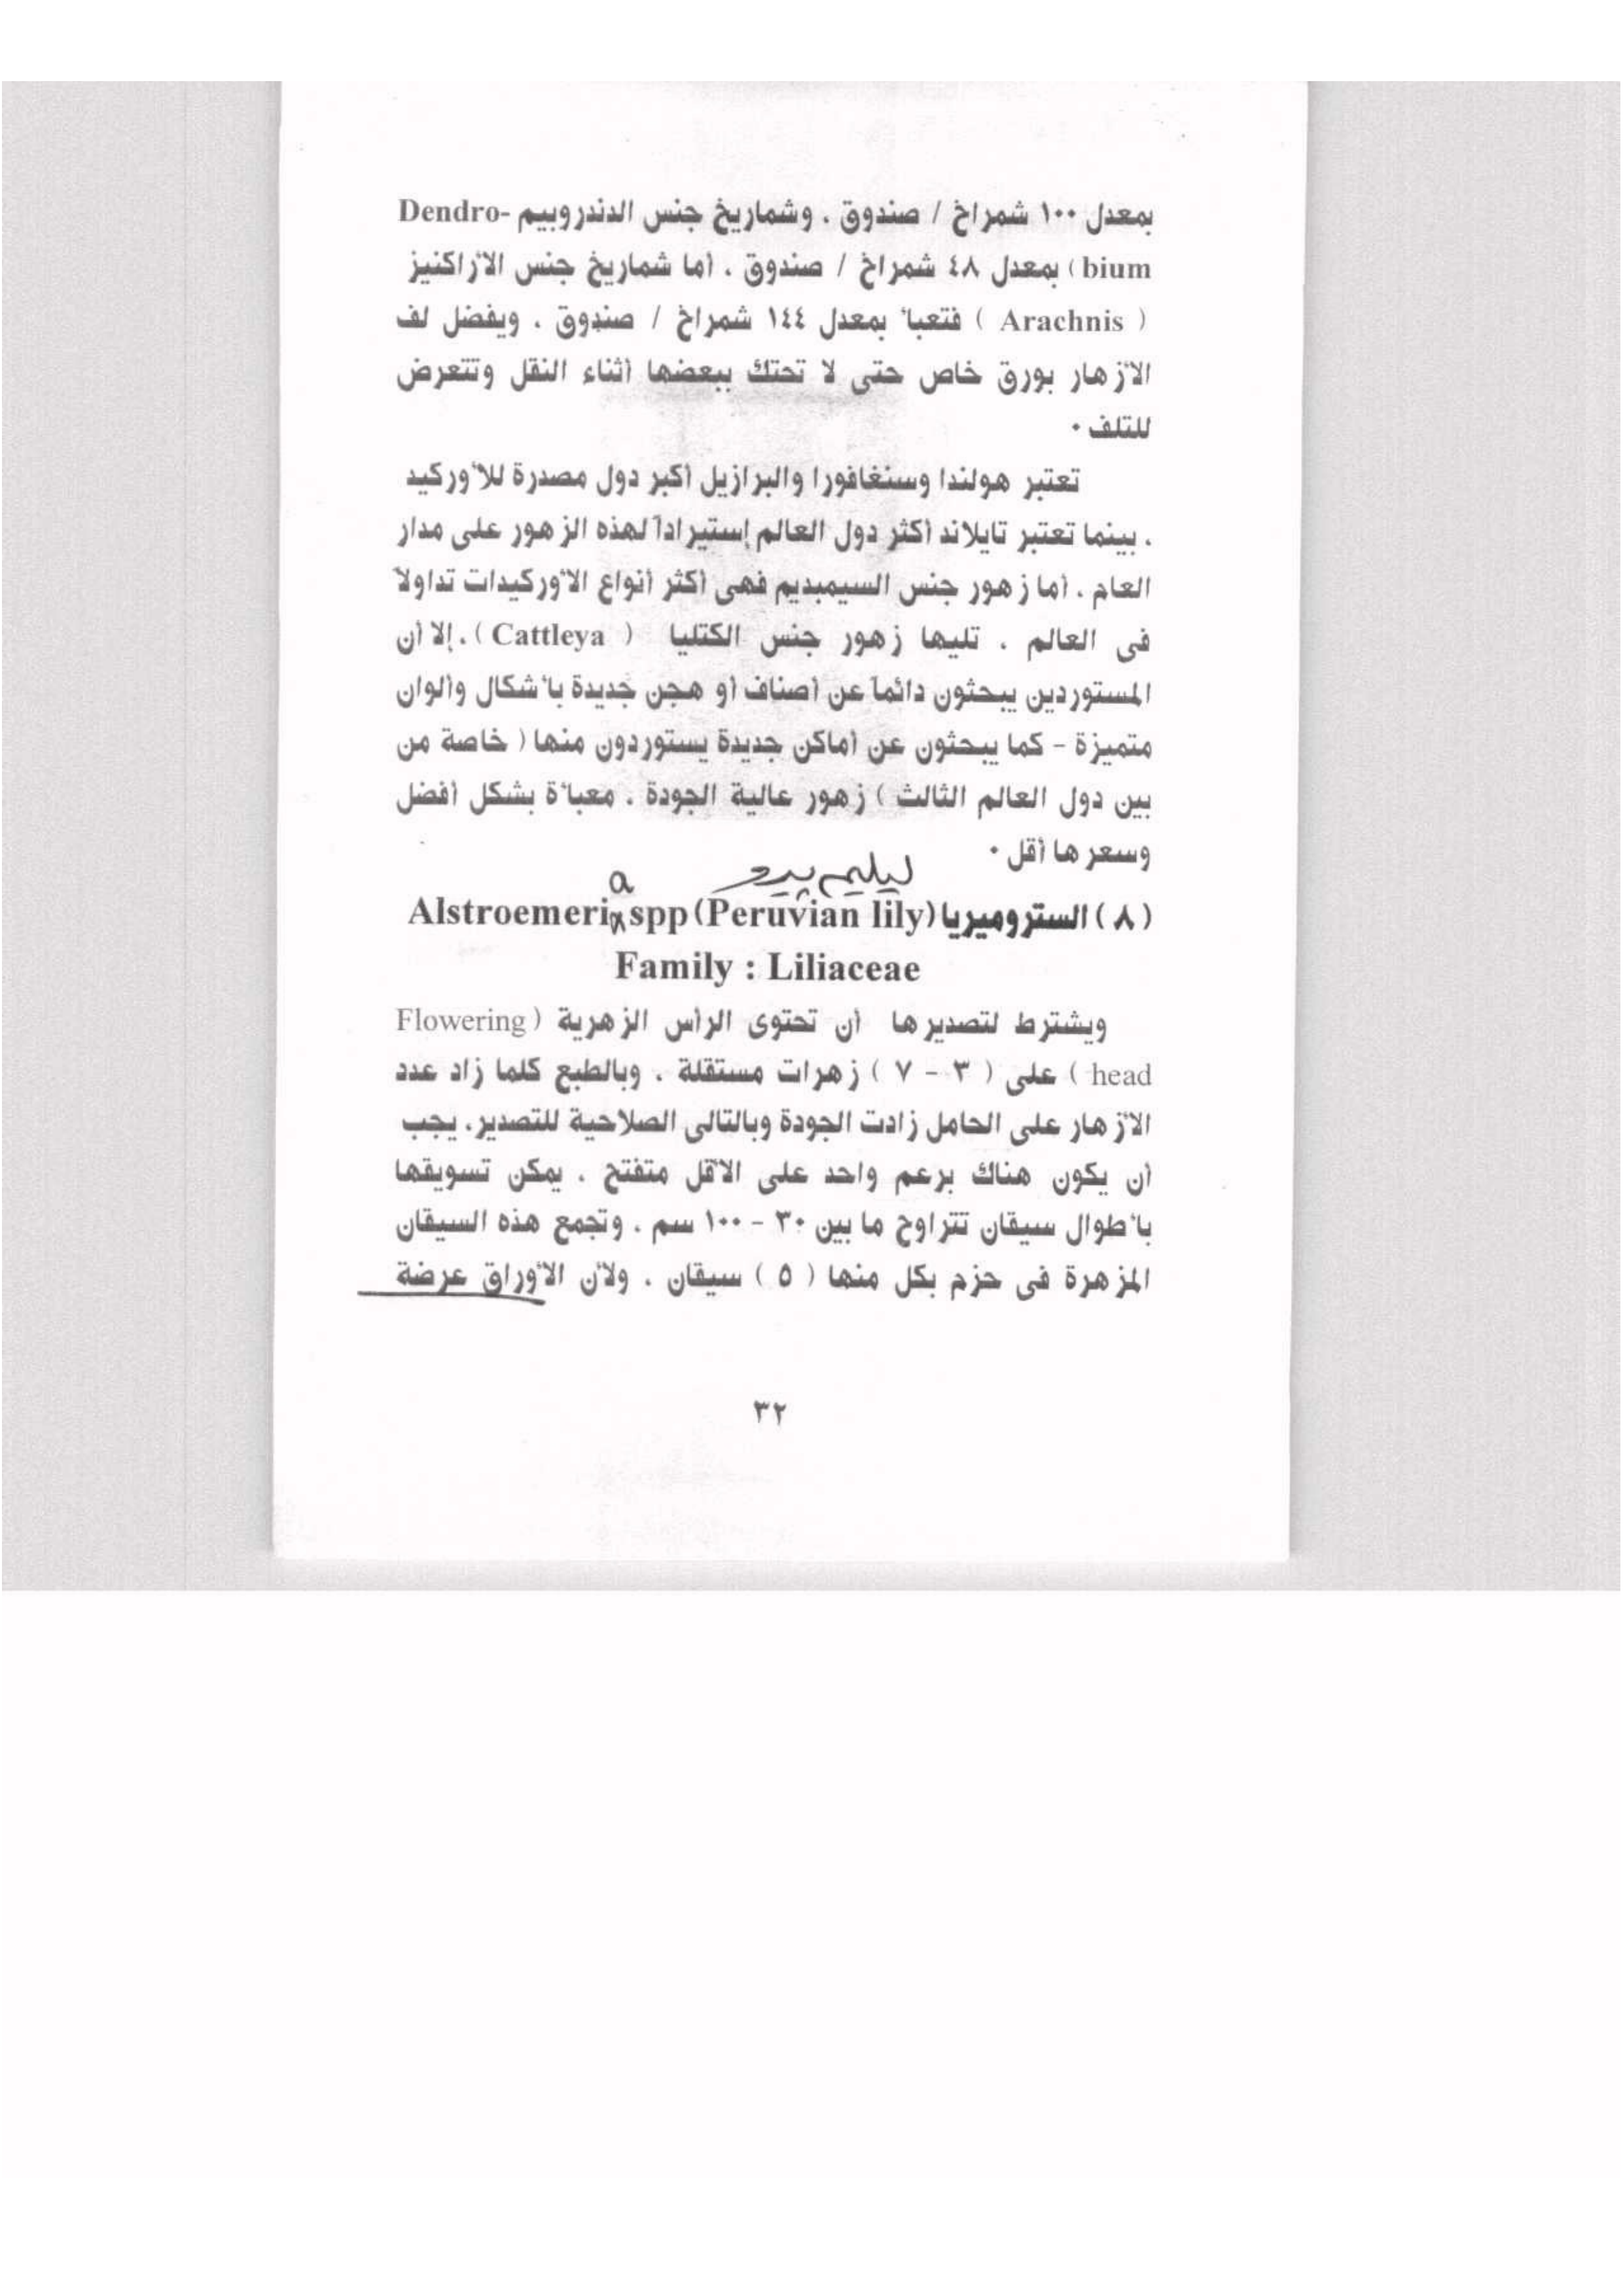 بمعدل ١٠٠ شمراخ / صندوق . وشماريخ جنس الدندروبيم Dendro-
bium ) بمعدل ٤٨ شمراخ / صندوق . أما شماريخ جنس الأراكنيز
( Arachnis ) فتعبأ بمعدل ١٤٤ شمراخ / صندوق . ويفضل لف
الأزهار بورق خاص حتى لا تحتك ببعضها أثناء النقل وتتعرض
للتلف ٠
تعتبر هولندا وسنغافورا والبرازيل أكبر دول مصدرة للأوركيد
. بينما تعتبر تايلاند أكثر دول العالم إستيراداً لهذه الزهور على مدار
العام . أما زهور جنس السيمبديم فهى أكثر أنواع الأوركيدات تداولاً
فى العالم . تليها زهور جنس الكتليا ( Cattleya ) . إلا أن
المستوردين يبحثون دائماً عن أصناف أو هجن جديدة بأشكال وألوان
متميزة - كما يبحثون عن أماكن جديدة يستوردون منها ( خاصة من
بين دول العالم الثالث ) زهور عالية الجودة . معبأة بشكل أفضل
وسعرها أقل ٠
ليليم بيرو
a
( ٨ ) الستروميريا Alstroemeria spp (Peruvian lily)
Family : Liliaceae
ويشترط لتصديرها أن تحتوى الرأس الزهرية ( Flowering
head ) على ( ٣ - ٧ ) زهرات مستقلة . وبالطبع كلما زاد عدد
الأزهار على الحامل زادت الجودة وبالتالى الصلاحية للتصدير . يجب
أن يكون هناك برعم واحد على الأقل متفتح . يمكن تسويقها
بأطوال سيقان تتراوح ما بين ٣٠ - ١٠٠ سم . وتجمع هذه السيقان
المزهرة فى حزم بكل منها ( ٥ ) سيقان . ولأن الأوراق عرضة
٣٢